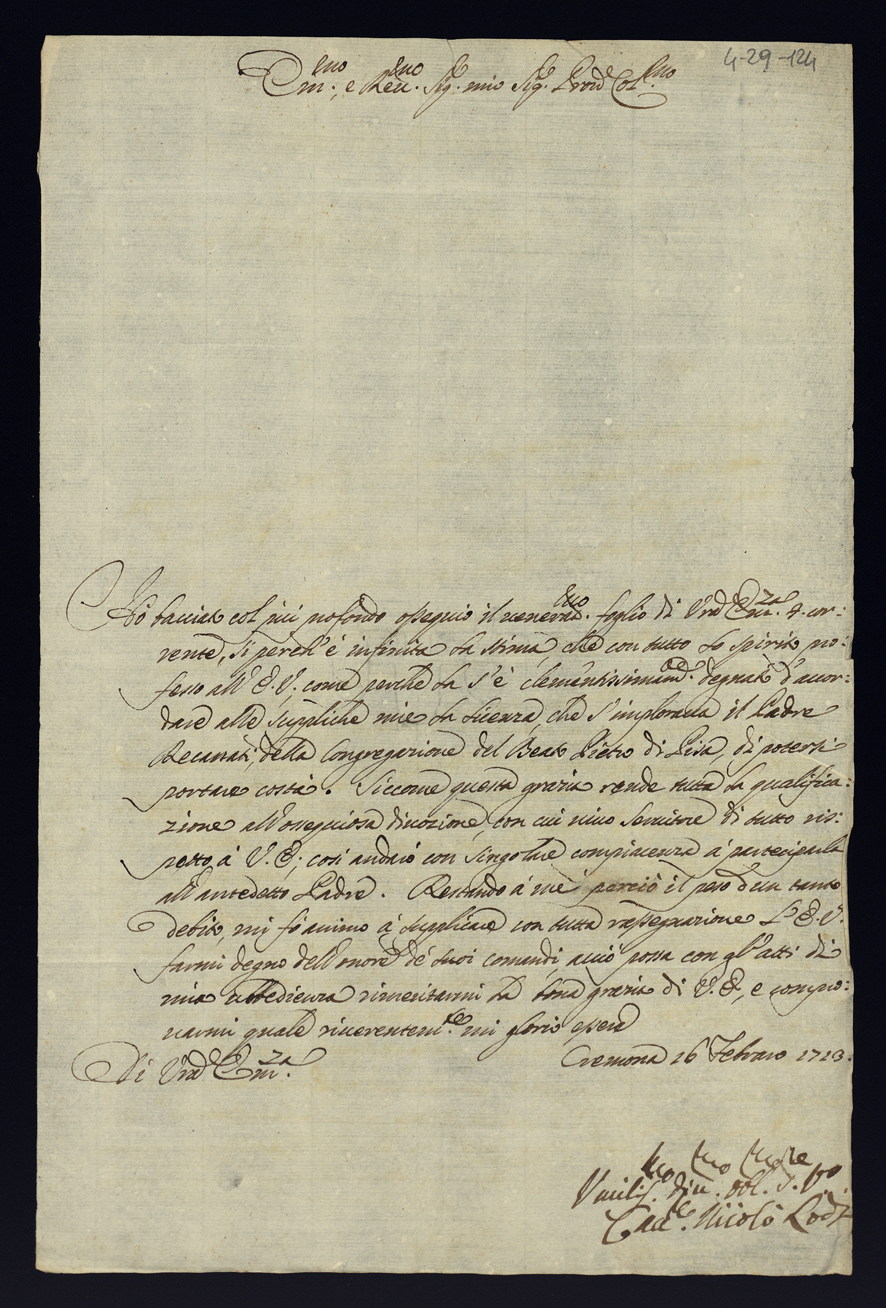 4-29-124
Em.mo, e Reu.mo Sig.e mio Sig.e Prōn Col.mo
Hò baciato col più profondo ossequio il venerat.mo foglio di Vrā Em.za 4. cor:
rente, si perch'è infinita la stima, che con tutto lo spirito pro:
fesso all'E.V. come perche la s'è clementissimam.te degnata d'accor:
dare alle suppliche mie la licenza, che s'implorava il Padre
Recanati, della Congregazione del Beato Pietro di Pisa, di potersi
portare costà. Siccome questa grazia rende tutta la qualifica:
zione all'ossequiosa divozione, con cui vivo servitore di tutto ris:
petto à V.E.; così andarò con singolare compiacenza à parteciparla
all'antedetto Padre. Restando à me perciò il peso d'un tanto
debito, mi fò animo à supplicare con tutta rassegnazione L'E.V.
farmi degno dell'onore de' suoi comandi, acciò possa con gl'atti di
mia ubbedienza rimeritarmi la bona grazia di V.E., e compro:
uarmi quale riuerentem.te mi glorio essere
Di Vrā Em.za
Cremona 16 Febraro 1713.
Vmilis.mo diu.mo obl. S.re
Cau.re Nicolò Lodi